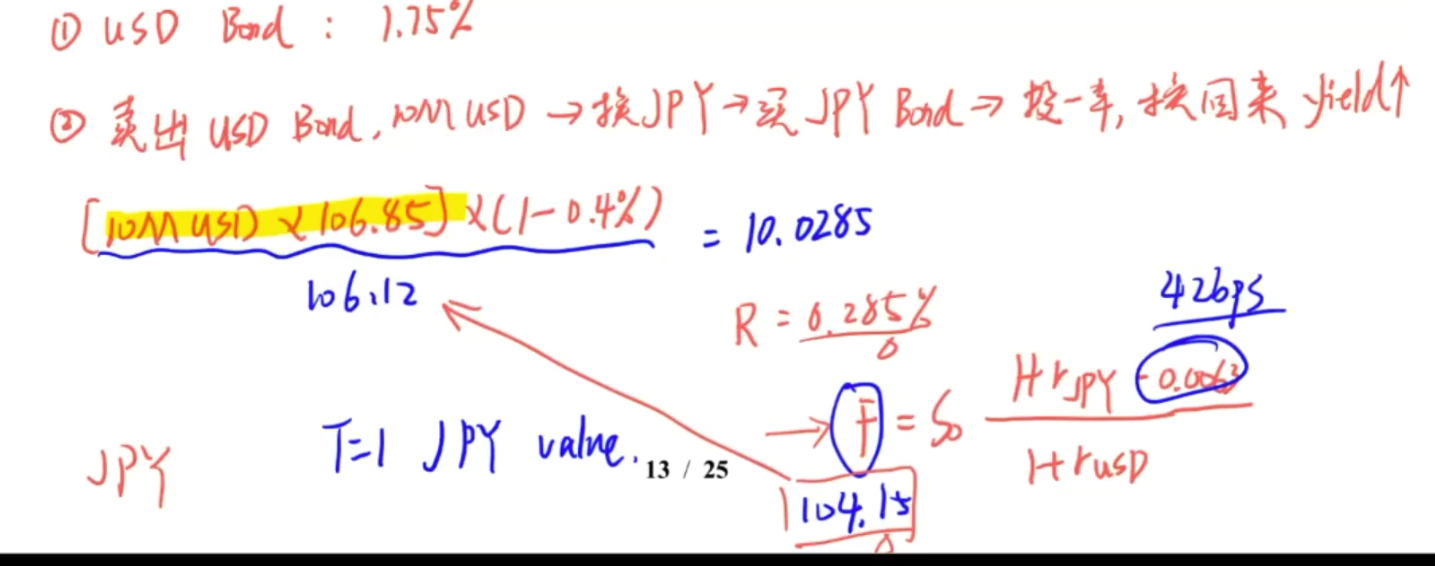 ① USD Bond : 1.75%
② 卖出 USD Bond, 10M USD → 换 JPY → 买 JPY Bond → 投一年, 换回来 yield↑
[10M USD × 106.85] × (1-0.4%) = 10.0285
106.12
42bps
R = 0.285%
→ F = S₀ (1+rJPY - 0.0063) / (1+rUSD)
JPY
T=1 JPY value.
13 / 25
104.15